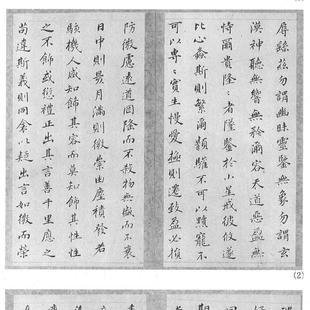 辱繇茲勿謂幽昧靈鑒無象勿謂玄
漠神聽無響無矜爾容天道惡盈無
恃爾貴隆〻者墜鑒於小星戒彼攸遂
比心螽斯則繁爾類驩不可以黷寵不
可以專〻實生慢愛極則遷致盈必損
防微慮遠道罔隆而不殺物無盛而不衰
日中則昃月滿則微崇由塵積替若
駭機人咸知飾其容而莫知飾其性性
之不飾或愆禮正出其言善千里應之
苟違斯義則同衾以疑出言如微而榮
(2)